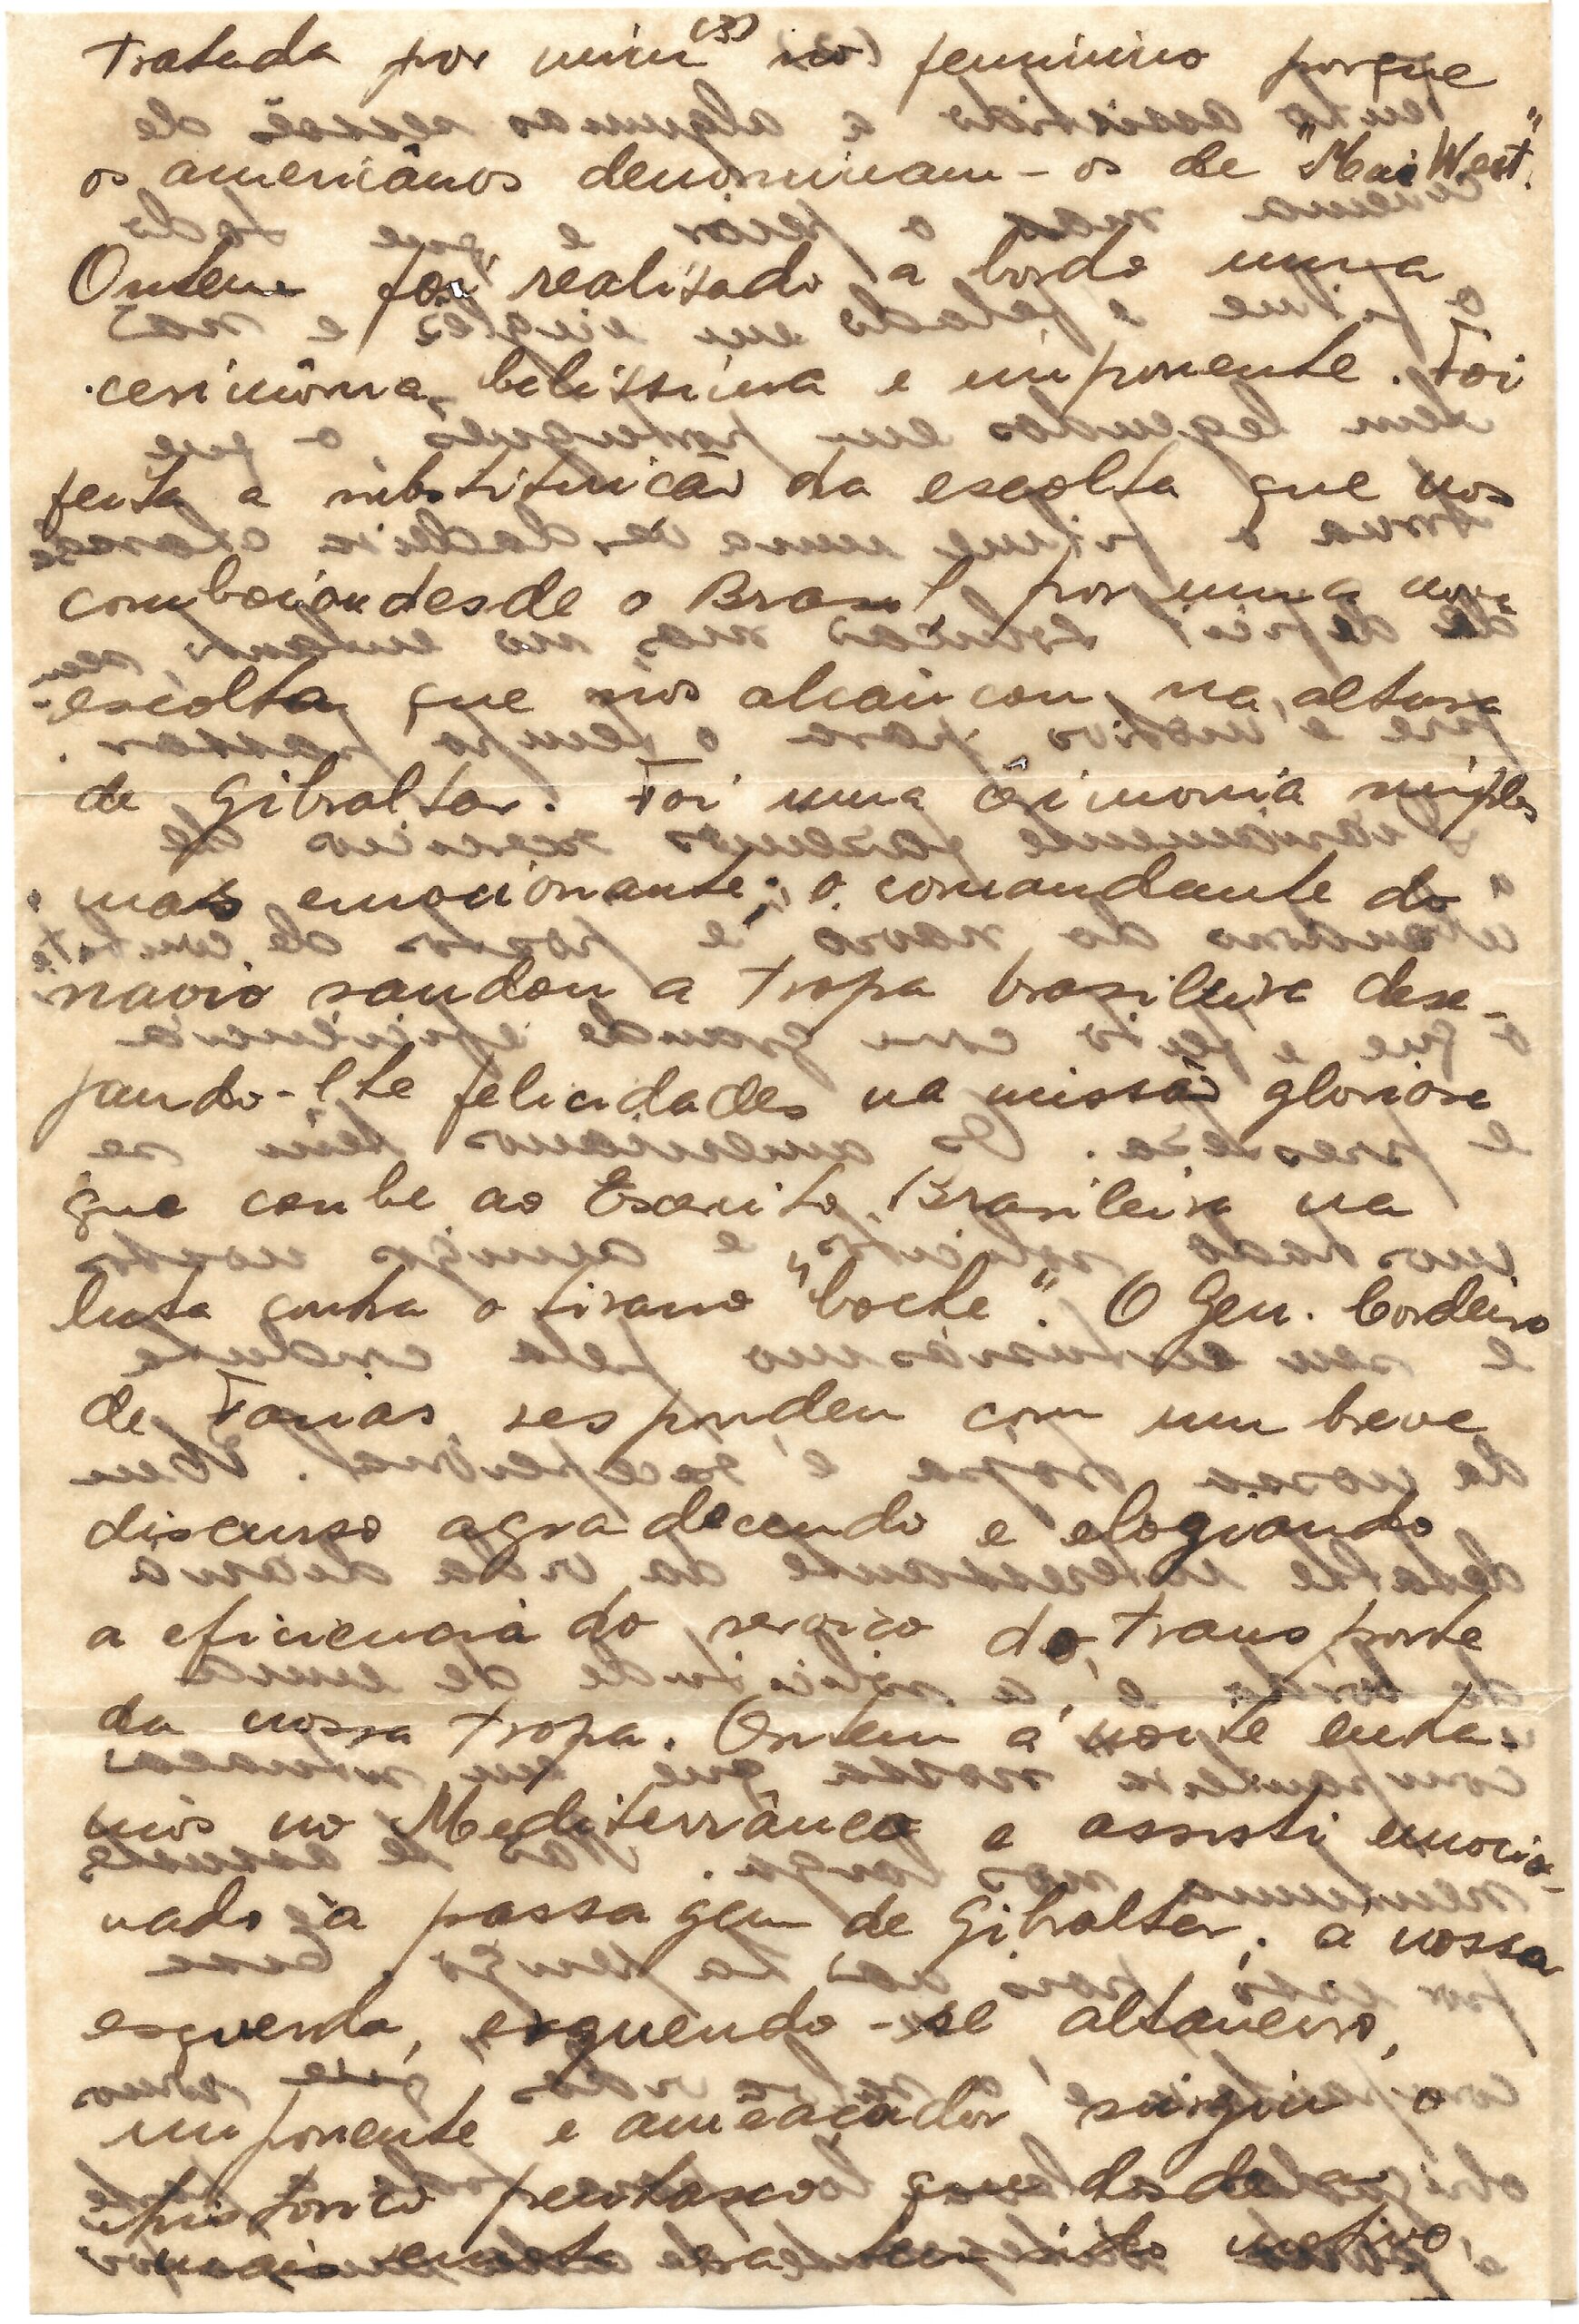 (3)
tratada por mim no feminino porque
os americânos denominam-os de "Mae West".
Ontem foi realisado a bordo uma
cerimônia belissima e imponente. Foi
feita a substituicão da escolta que nos
comboiou desde o Brasil por uma nova
escolta que nos alcançou na altura
de Gibraltar. Foi uma cerimonia simples
mas emocionante; o comandante do
navio saudou a tropa brasileira dese-
jando-lhe felicidades na missão gloriosa
que coube ao Exercito Brasileiro na
luta contra o tirano "boche". O Gen. Cordeiro
de Farias respondeu com um breve
discurso agradecendo e elogiando
a eficiencia do serviço do transporte
da nossa tropa. Ontem á noite entra-
mos no Mediterrâneo e assisti emocio-
nado a passagem de Gibraltar; á nossa
esquerda, erguendo-se altaneiro,
imponente e ameaçador surgiu o
historico penhasco que desde a
mais remota era tem sido motivo